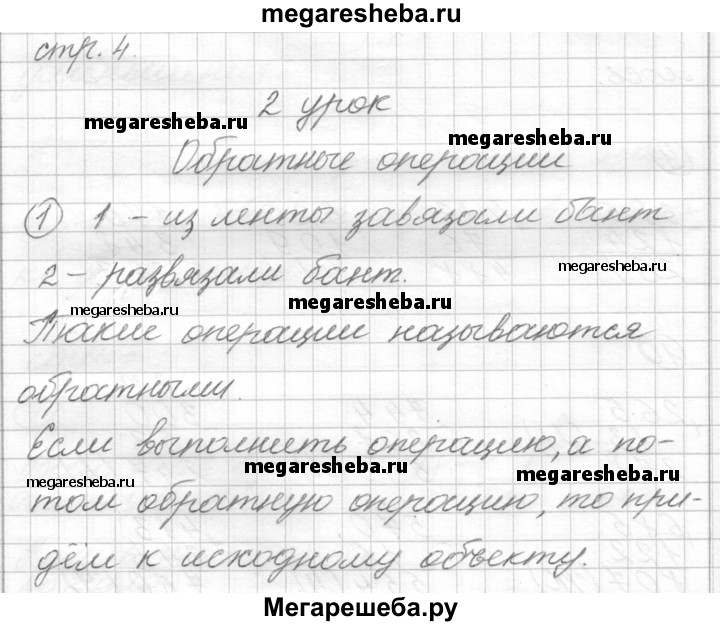 megaresheba.ru
стр. 4.
2 урок
megaresheba.ru
megaresheba.ru
Обратные операции
① 1 – из ленты завязали бант
2 – развязали бант.
megaresheba.ru
megaresheba.ru
megaresheba.ru
Такие операции называются
обратными.
Если выполнить операцию, а по-
megaresheba.ru
megaresheba.ru
megaresheba.ru
том обратную операцию, то при-
дём к исходному объекту.
Мегарешеба.ру